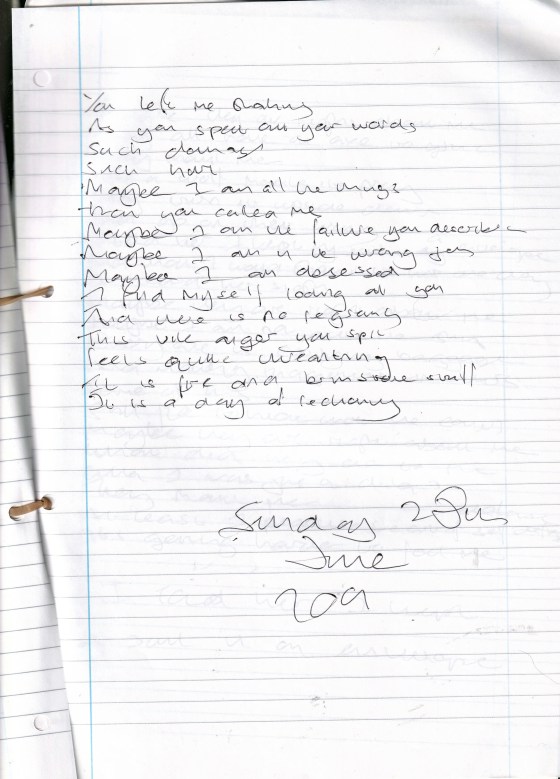 You left me shaking
As you spat out your words
Such damage
Such hate
Maybe I am all the things
that you called me
Maybe I am the failure you described
Maybe I am in the wrong job
Maybe I am obsessed
I find myself looking at you
And there is no
This vile anger you spit
feels quite
it is fire and brimstone
It is a day of reckoning
Sunday 28th
June
2009